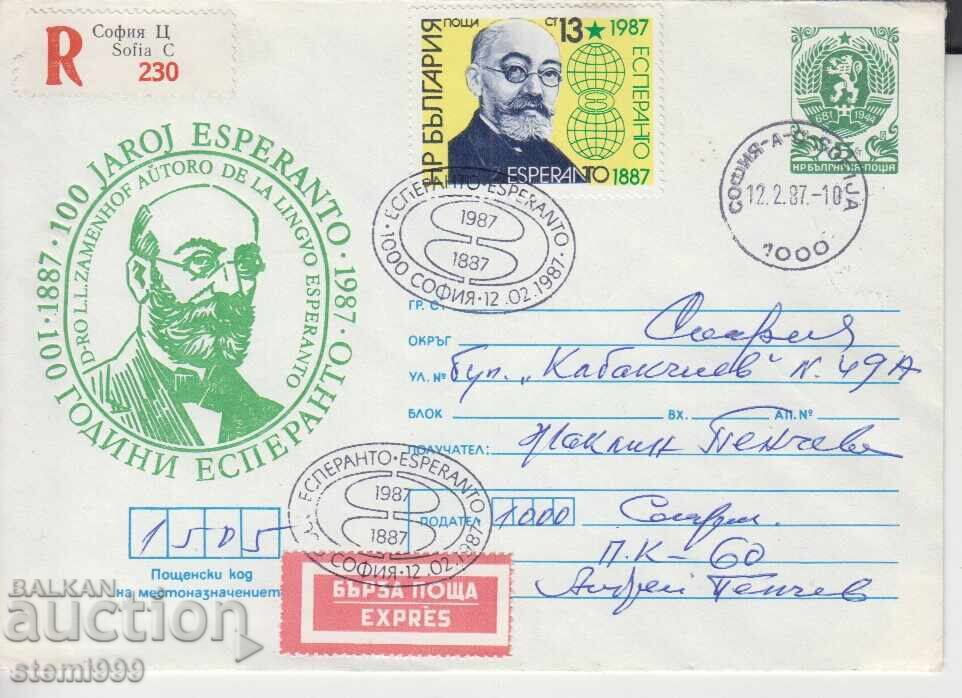 R
София Ц
Sofia C
230
НР БЪЛГАРИЯ
ПОЩИ
СТ 13 ★ 1987
ЕСПЕРАНТО
ESPERANTO 1887
681 1944
5
НР БЪЛГАРИЯ-ПОЩА
12.2.87.-10
1000
1887 · 100 JAROJ ESPERANTO · 1987
100 ГОДИНИ ЕСПЕРАНТО
D-RO L.L.ZAMENHOF AŬTORO DE LA LINGVO ESPERANTO
ЕСПЕРАНТО·ESPERANTO
1987
1887
1000 СОФИЯ·12.02.1987·
ГР. С.
София
ОКРЪГ
УЛ. №
бул. „Кабакчиев" N. 49А
БЛОК
ВХ.
АП.№
ПОЛУЧАТЕЛ:
Жаклин Пенчева
ЕСПЕРАНТО·ESPERANTO
1987
1887
СОФИЯ·12.02.1987
ПОДАТЕЛ
1000
София
П.К-60
Андрей Пенчев
1505
Пощенски код
на местоназначението
БЪРЗА ПОЩА
EXPRÈS
BALKAN
auction
stemi999